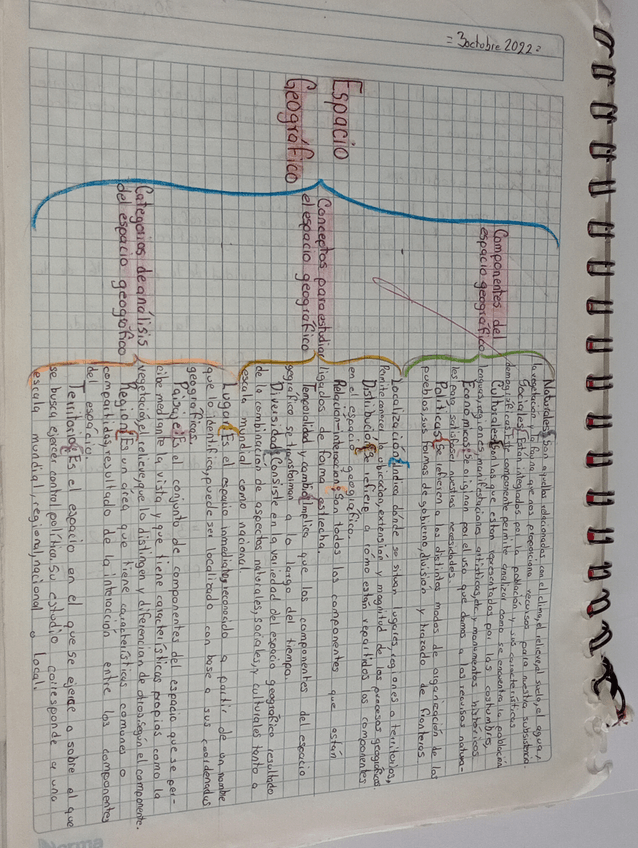 = 3 octubre 2022 =
Espacio
Geográfico
Componentes del
espacio geográfico
Naturales: Son aquellos relacionados con el clima, el relieve, el suelo, el agua,
la vegetación y la fauna que nos proporciona recursos para nuestra subsistencia.
Sociales: Están integrados por la población y sus características
demográficas. Este componente permite analizar cómo se encuentra la población
Culturales: Son los que están representados por las costumbres,
lenguas, religiones, manifestaciones artísticas, y monumentos históricos
Económicos: se originan por el uso que damos a los recursos natura-
les para satisfacer nuestras necesidades.
Políticas: Se refieren a los distintos modos de organización de los
pueblos, sus formas de gobierno, división y trazado de fronteras
Conceptos para estudiar
el espacio geográfico
Localización: Indica dónde se sitúan lugares, regiones o territorios,
Permite conocer la ubicación, extensión y magnitud de los procesos geográficos
Distribución: Se refiere a cómo están repartidos los componentes
en el espacio geográfico.
Relación-interacción: Son todos los componentes que están
ligados de forma estrecha.
Temporalidad y cambio: Implica que los componentes del espacio
geográfico se transforman a lo largo del tiempo.
Diversidad: Consiste en la variedad del espacio geográfico resultado
de la combinación de aspectos naturales, sociales, y culturales tanto a
escala mundial como nacional
Categorías de análisis
del espacio geográfico
Lugar: Es el espacio inmediato reconocido a partir de un nombre
que lo identifica, puede ser localizado con base a sus coordenadas
geográficas.
Paisaje: Es el conjunto de componentes del espacio que se per-
cibe mediante la vista y que tiene características propias como la
vegetación, el relieve, que lo distinguen y diferencian de otros según el componente.
Región: Es un área que tiene características comunes o
compartidas, resultado de la interacción entre los componentes
del espacio.
Territorio: Es el espacio en el que se ejerce o sobre el que
se busca ejercer control político. Su estudio corresponde a una
escala mundial, regional, nacional o local.
Norma